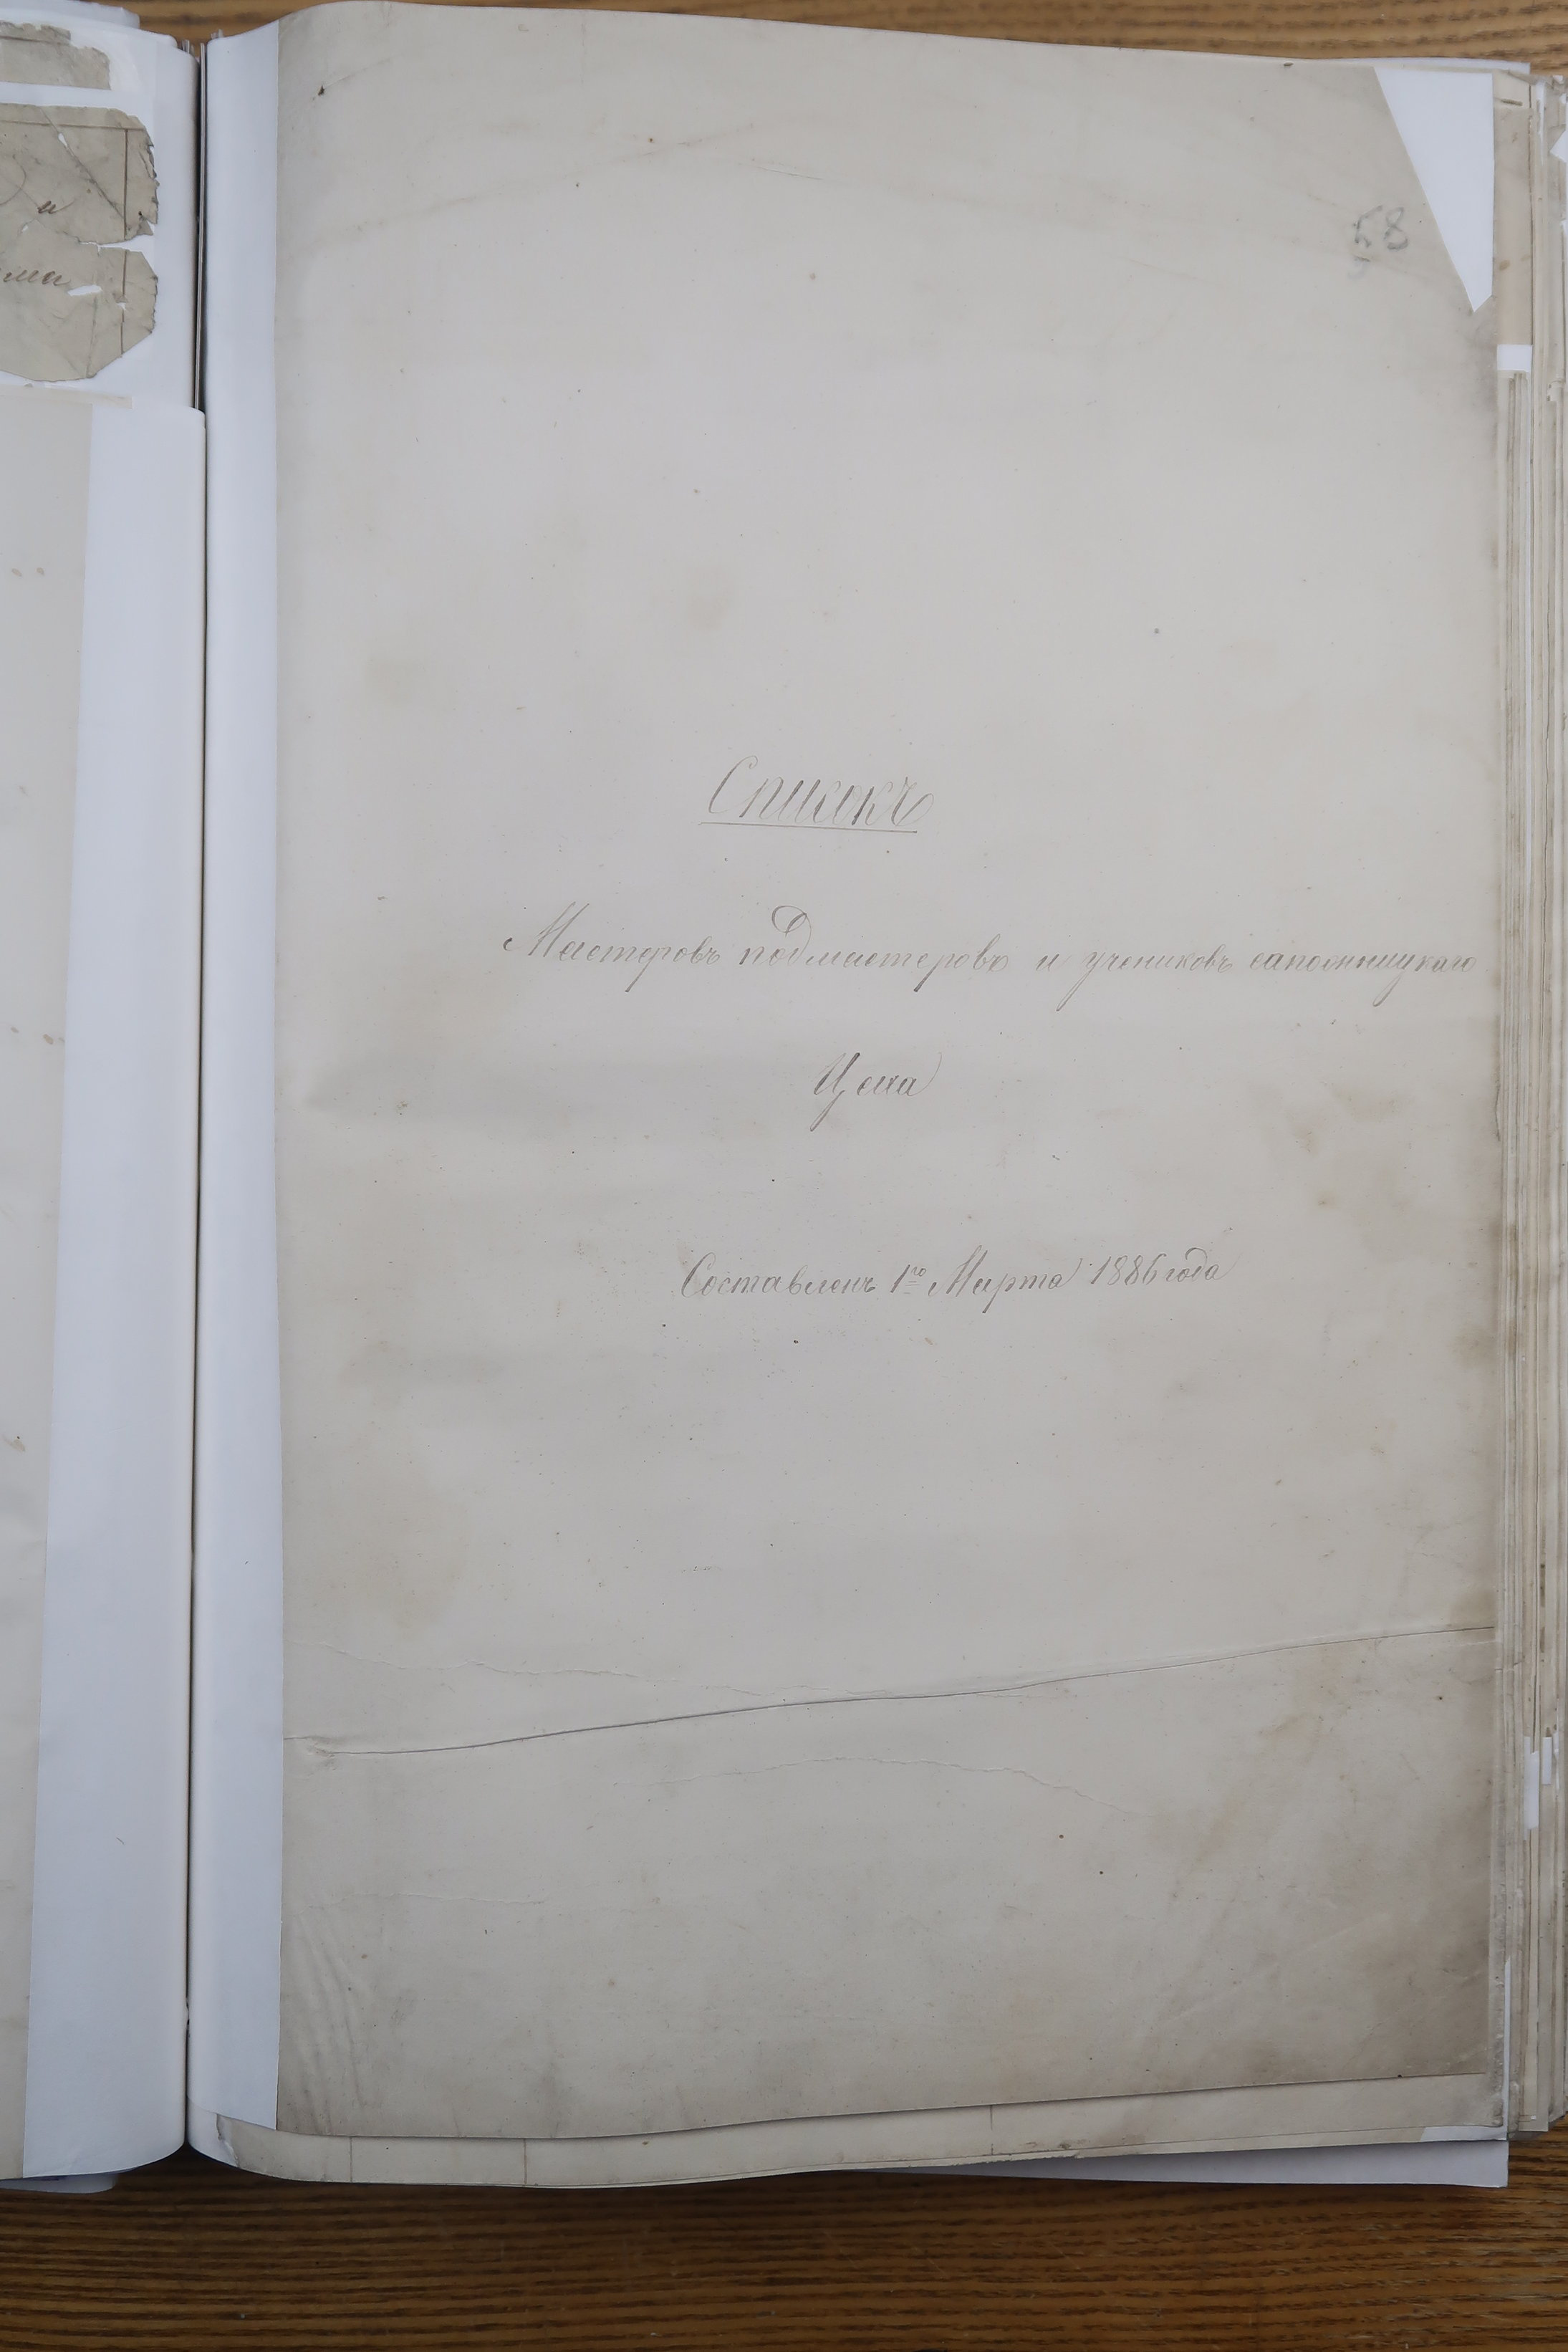 58
Списокъ
Мастеровъ подмастеровъ и учениковъ сапожницкаго
Цеха
Составленъ 1го Марта 1886 года